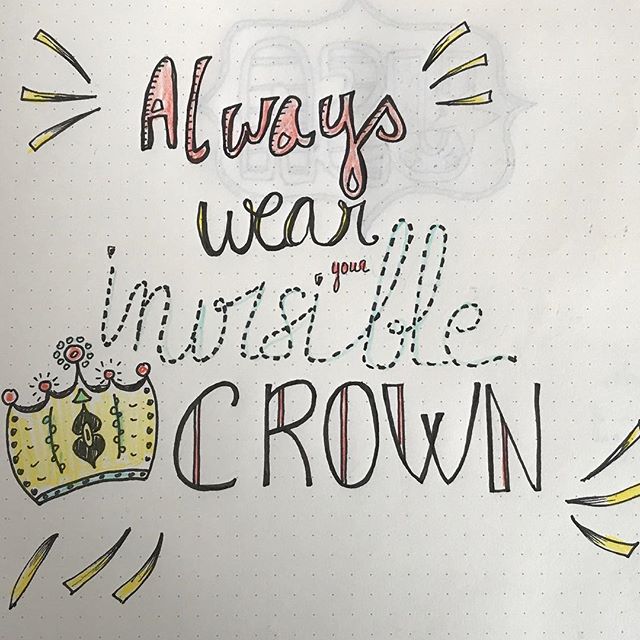 Always
wear
your
invisible
CROWN